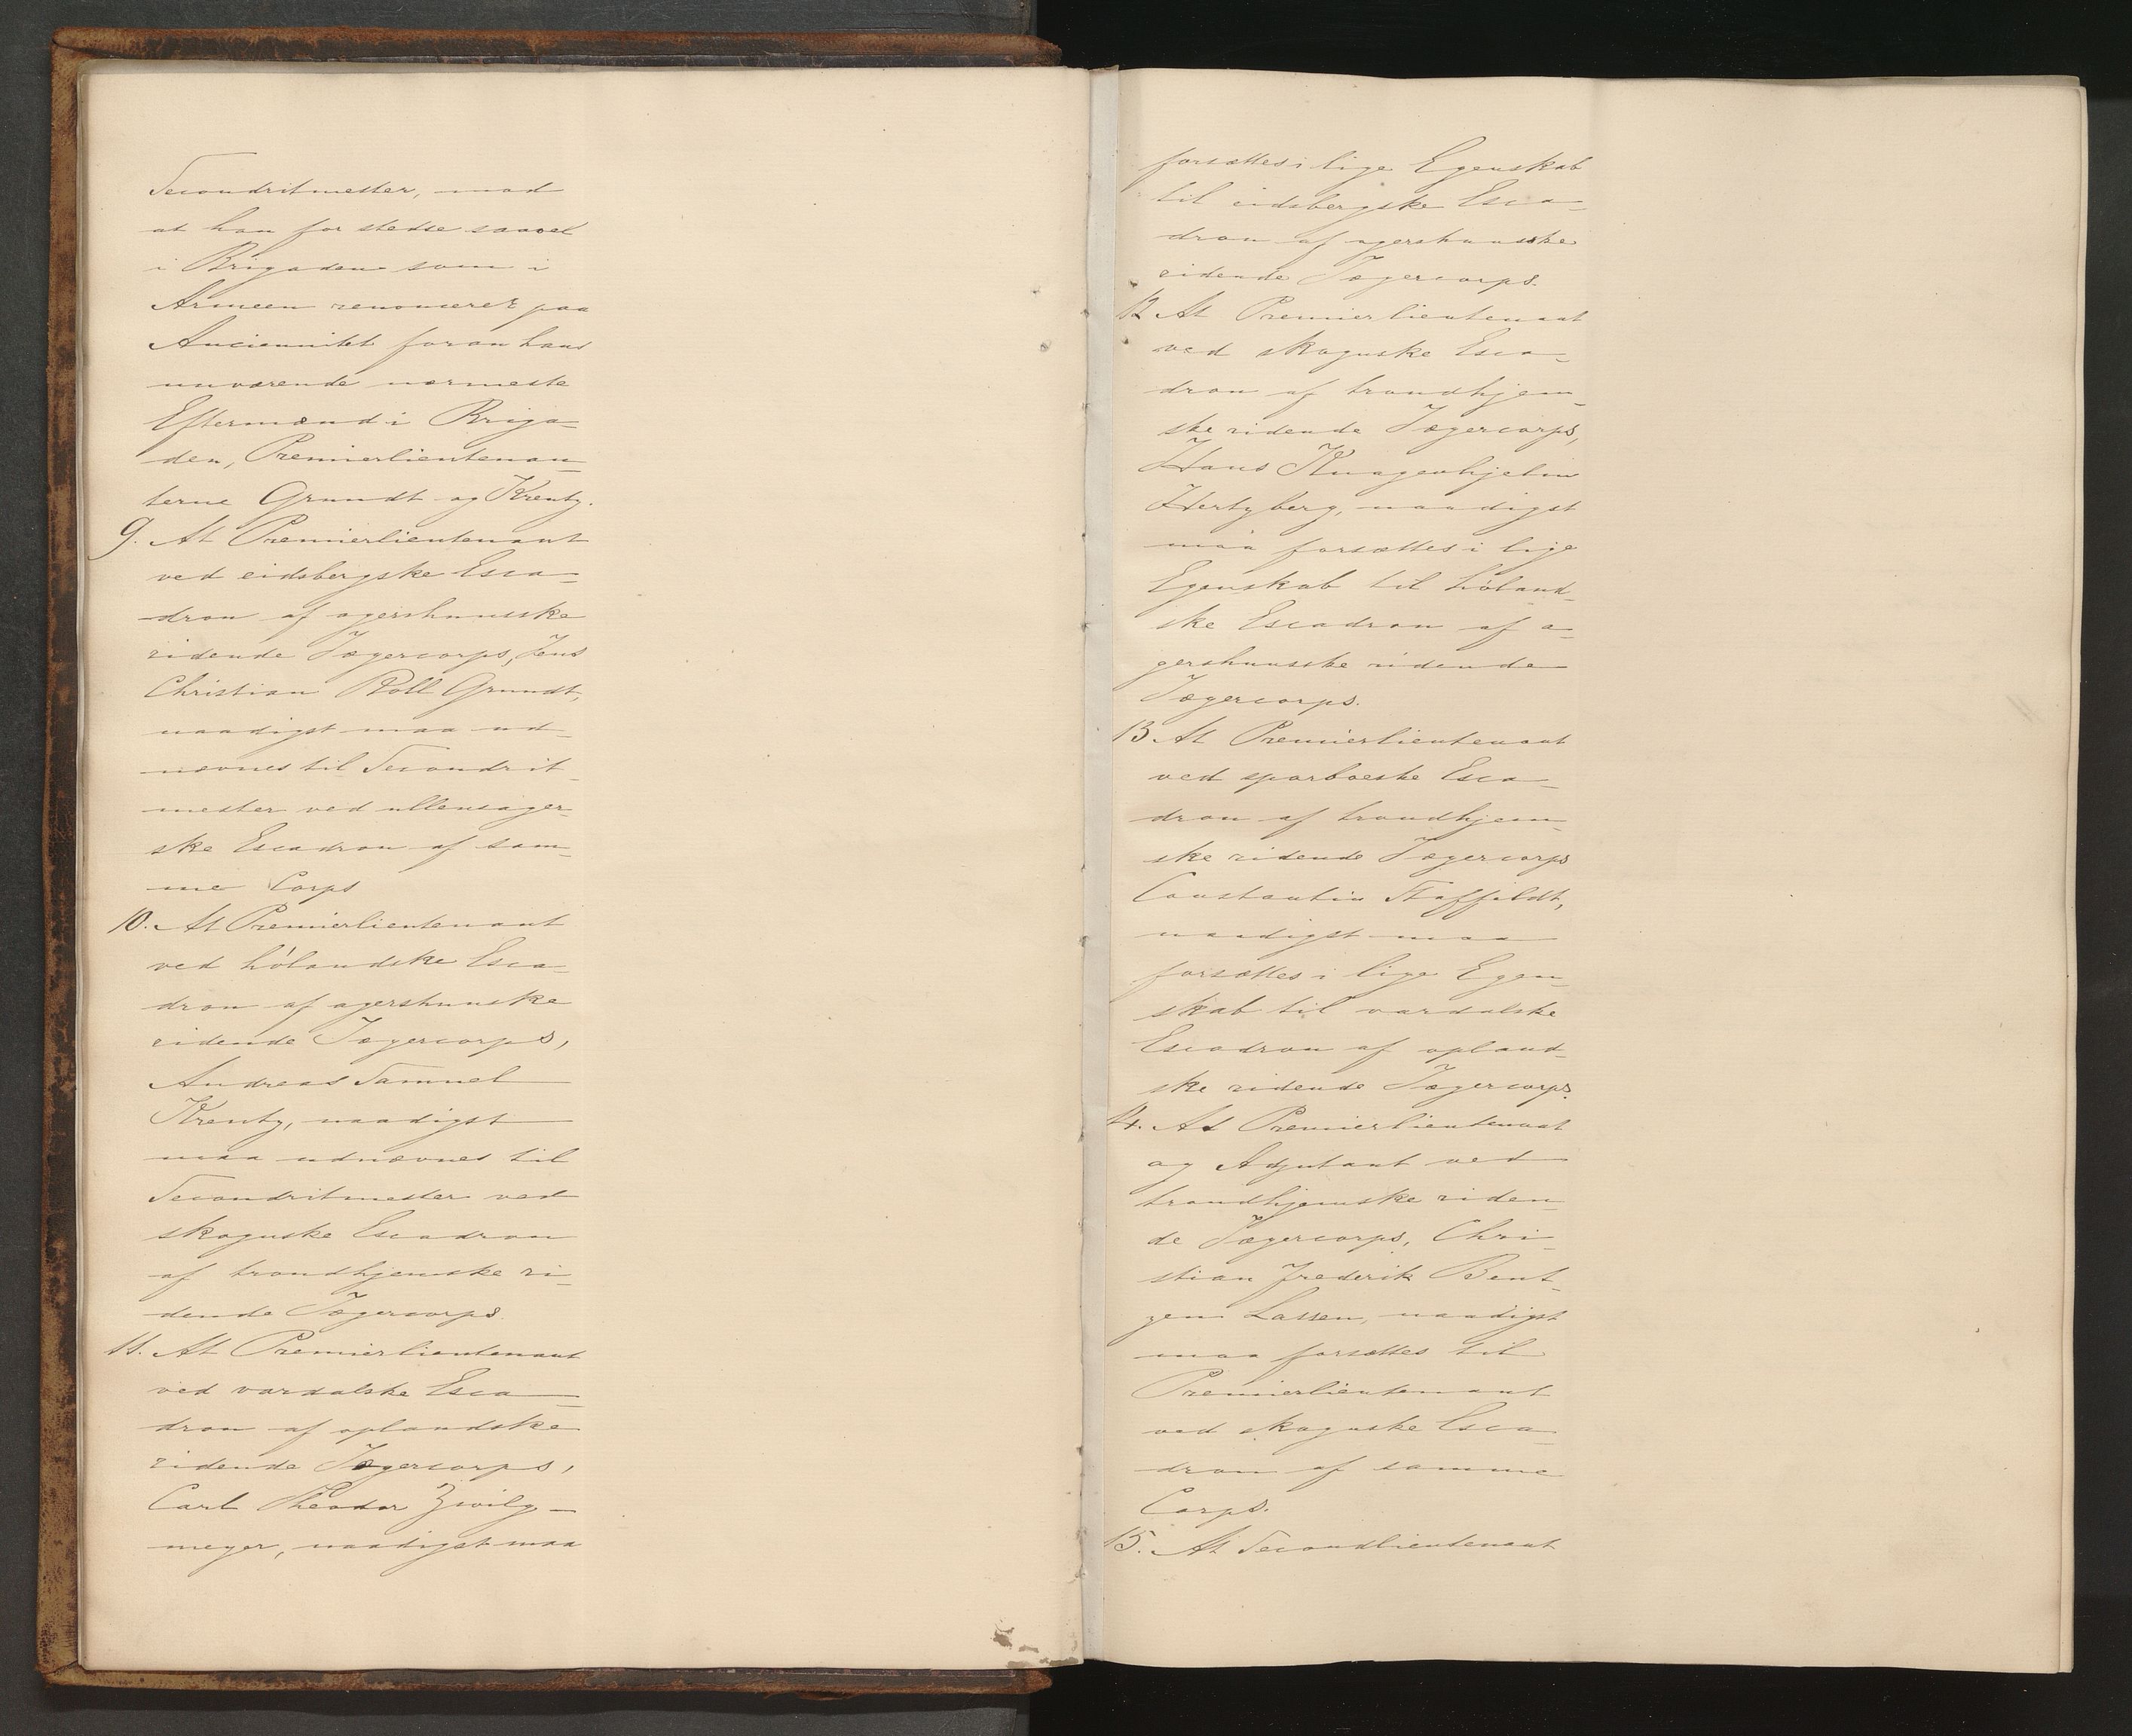 Secondritmester, mod
at han for stedse saavel
i Brigaden som i
Armeen renoncerer paa
Anciennitet foran hans
nuværende nærmeste
Eftermænd i Briga-
den, Premierlieutenan-
terne Grundt og Krentz.
9. At Premierlieutenant
ved eidsbergske Esca-
dron af agershuusske
ridende Jægercorps, Jens
Christian Roll Grundt,
naadigst maa ud-
nævnes til Secondrit-
mester ved ullensager-
ske Escadron af sam-
me Corps
10. At Premierlieutenant
ved hölandske Esca-
dron af agershuuske
ridende Jægercorps,
Andreas Samuel
Krentz, naadigst
maa udnævnes til
Secondritmester ved
skognske Escadron
af trondhjemske ri-
dende Jægercorps.
11. At Premierlieutenant
ved vardalske Esca-
dron af oplandske
ridende Jægercorps,
Carl Theodor Zwilg-
meyer, naadigst maa
forsættes i lige Egenskab
til eidsbergske Esca-
dron af agershuusske
ridende Jægercorps.
12. At Premierlieutenant
ved skognske Esca-
dron af trondhjem-
ske ridende Jægercorps,
Hans Knagenhjelm
Hertzberg, naadigst
maa forsættes i lige
Egenskab til höland-
ske Escadron af a-
gershuusske ridende
Jægercorps.
13. At Premierlieutenant
ved sparboeske Esca-
dron af trondhjem-
ske ridende Jægercorps
Constantin Staffeldt,
naadigst maa
forsættes i lige Egen-
skab til vardalske
Escadron af opland-
ske ridende Jægercorps.
14. At Premierlieutenant
og Adjutant ved
trondhjemske riden-
de Jægercorps, Chri-
stian Frederik Bent-
zen Lassen, naadigst
maa forsættes til
Premierlieutenant
ved skognske Esca-
dron af samme
Corps.
15. At Secondlieutenant